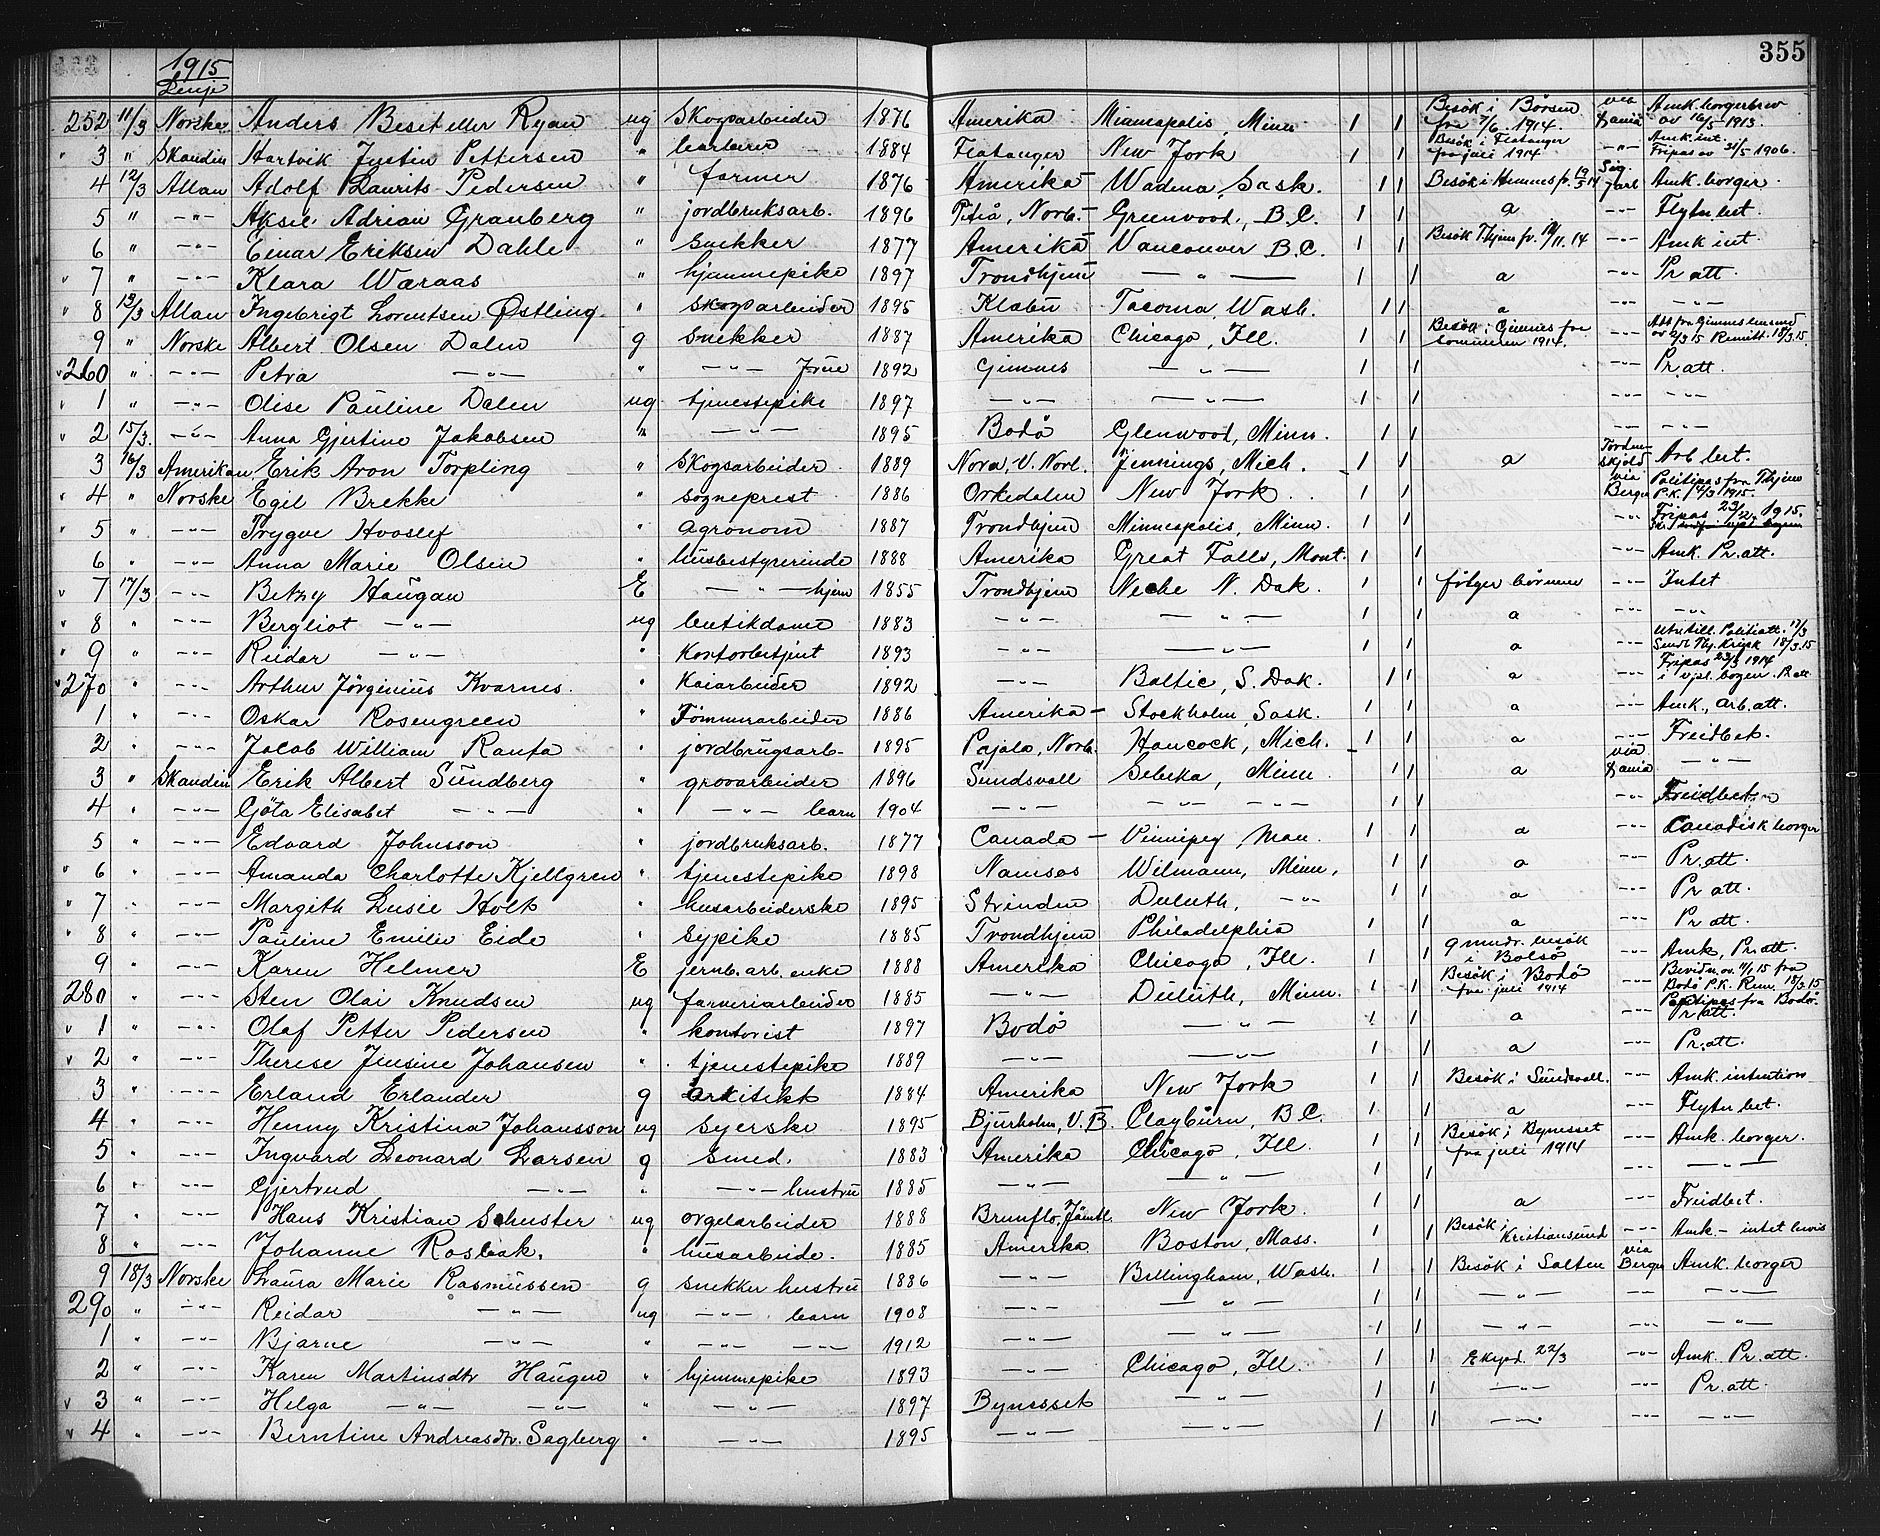 355
1915
Linje
252 11/3 Norske Anders Besit eller Ryan ug Skogsarbeider 1876 Amerika Minneapolis, Minn 1 1 Besøk i Børsen fra 7/6 1914. via Dania Amk. borgerbrev av 16/5 1913.
" 3 " Skandin Hartvik Justin Pettersen " barberer 1884 Flatanger New York 1 1 Besøk i Flatanger fra juli 1914 -"- Amk. int. Fripas av 31/5 1906.
4 12/3 Allan Adolf Laurits Pedersen " farmer 1876 Amerika - Wadena, Sask. 1 1 Besøk i Hemnes fr. 19/5 14 Sig Jarl Amk. borger.
5 " -"- Aksel Adrian Granberg " jordbruksarb. 1896 Piteå, Norb. - Greenwood, B.C. 1 1 a -"- Flytn bet.
6 " -"- Einar Eriksen Dahle " Snekker 1877 Amerika - Vancouver B.C. 1 1 Besøk Thjem fr. 12/11. 14 -"- Amk int.
" 7 " -"- Klara Waraas " hjemmepike 1897 Trondhjem — " — 1 1 a -"- Pr att.
" 8 13/3 Allan Ingebrigt Lorentsen Østling " Skogsarbeider 1895 Klæbu Tacoma, Wash. 1 1 a -"- -"-
9 " Norske Albert Olsen Dalen g Snekker 1887 Amerika Chicago, Ill. 1 1 Besøk i Gimnes fra sommeren 1914. -"- Att fra Gimnes lensmd av 9/3 15 Remitt. 18/3. 15.
v 260 " -"- Petra -"- " -"- frue 1892 Gimnes — " — 1 1 -"- Pr. att.
v 1 " -"- Olise Pauline Dalen ug tjenestepike 1897 -"- — " — 1 1 -"- -"-
v 2 15/3. -"- Anna Gjertine Jakobsen " -"- 1895 Bodø Glenwood, Minn. 1 1 -"- -"-
3 16/3 Amerikan Erik Aron Torpling " Skogsarbeider. 1889 Nora, V. Norl. Jennings, Mich. 1 1 a Tordenskjold Arb bet.
" 4 " Norske Egil Brekke " sogneprest 1886 Orkedalen New York 1 1 via Bergen Politipas fra Thjems P.K. 14/3 1915.
" 5 " -"- Trygve Hvoslef " agronom 1887 Trondhjem Minneapolis, Minn. 1 1 -"- Fripas 23/2. 1915.
6 " -"- Anna Marie Olsen " husbestyrerinde 1888 Amerika Great Falls, Mont. 1 1 -"- Amk. Pr. att.
v 7 17/3 -"- Betzy Haugan E — " — hjem 1855 Trondhjem Neche N. Dak. 1 1 følger børnene -"- Intet
" 8 " -"- Bergliot -"- ug butikdame 1883 -"- — " — 1 1 a -"- -"-
" 9 " -"- Reidar -"- " Kontorbetjent 1893 -"- — " — 1 1 a -"- Utestill. Politiatt. 17/3 Sendt Thj. Krigsk 18/3. 15
v 270 " -"- Arthur Jørginius Kvarnes. " Kaiarbeider 1892 -"- Baltic, S. Dak. 1 1 a -"- Fripas 23/3 1914 i vpl. bogen. Pr att
1 " -"- Oskar Rosengreen " Tømmerarbeider 1886 Amerika - Stockholm, Sask. 1 1 a -"- Amk., arb. att.
2 " -"- Jacob William Ranta " jordbrugsarb- 1895 Pajala, Norb. Hancock, Mich. 1 1 a -"- Freidbet.
3 " Skandin Erik Albert Sundberg " grovarbeider 1896 Sundsvall Sebeka, Minn. 1 1 a via Dania -"-
4 " -"- Gjöta Elisabet -"- " -"- barn 1904 -"- -"- -"- 1 1 -"- Freidbet.
5 " -"- Edvard Johnsson " jordbruksarb. 1877 Canada - Vinnipeg Man. 1 1 a -"- Canadisk borger
" 6 " -"- Amanda Charlotte Kjellgren " tjenestepike 1898 Namsos Wilmann, Minn, 1 1 a -"- Pr. att.
" 7 " -"- Margith Lusie Holt " husarbeiderske 1895 Strinden Duluth, -"- 1 1 a -"- Pr att.
" 8 " -"- Pauline Emilie Eide " Sypike 1885 Trondhjem Philadelphia 1 1 a -"- Pr att.
9 " -"- Karen Helmer E jernb. arb. enke 1888 Amerika Chicago, Ill. 1 1 9 mndr. besøk i Bolsø -"- Amk, Pr. att.
280 " -"- Sten Olai Knudsen ug farveriarbeider 1885 -"- Duluth, Minn. 1 1 Besøk i Bodø fra juli 1914 -"- Bevidn. av. 11/1 15 fra Bodø P.K. Rem. 18/3. 15
v 1 " -"- Olaf Petter Pedersen " kontorist 1897 Bodø — " — 1 1 a -"- Politipas fra Bodø. Pr att.
v 2 " -"- Therese Jensine Johansen " tjenestepike 1889 -"- — " — 1 1 a -"- Pr. att.
3 " -"- Erland Erlander g Arkitekt 1884 Amerika New York 1 1 Besøk i Sundsvall. -"- Amk. intention
4 " -"- Henny Kristina Johansson ug Syerske 1895 Bjurholm, V.B. Clayburn, B.C. 1 1 a -"- Flytn bet.
5 " -"- Ingvard Leonard Larsen g Smed. 1883 Amerika Chicago, Ill. 1 1 Besøk i Bynesset fra juli 1914 -"- Amk. borger.
6 " -"- Gjertrud -"- " -"- hustru 1885 -"- — " — 1 1 -"- -"-
7 " -"- Hans Kristian Schuster ug orgelarbeider 1888 Brunflo, Jämtl. New York. 1 1 a -"- Freidbet.
8 " -"- Johanne Rosbak. " husarbeide. 1885 Amerika Boston, Mass. 1 1 Besøk i Kristiansund -"- Amk - intet bevis
9 18/3 Norske Laura Marie Rasmussen g snekker hustru 1886 -"- Bellingham, Wash. 1 1 Besøk i Salten via Bergen Amk. borger
290 " -"- Reidar -"- ug -"- barn 1908 -"- — " — 1 1 -"- -"- -"-
1 " -"- Bjarne -"- " -"- -"- 1912 -"- — " — 1 1 -"- -"- -"-
2 " -"- Karen Martinsdtr Haugen " hjemmepike 1893 -"- Chicago, Ill. 1 1 Eksped. 22/3 -"- Amk. Pr. att.
v 3 " -"- Helga -"- -"- " -"- 1897 Bynesset -"- 1 1 -"- -"- Pr. att.
v 4 " -"- Berntine Andreasdtr. Sagberg " -"- 1895 -"- -"- 1 1 -"- -"- -"-